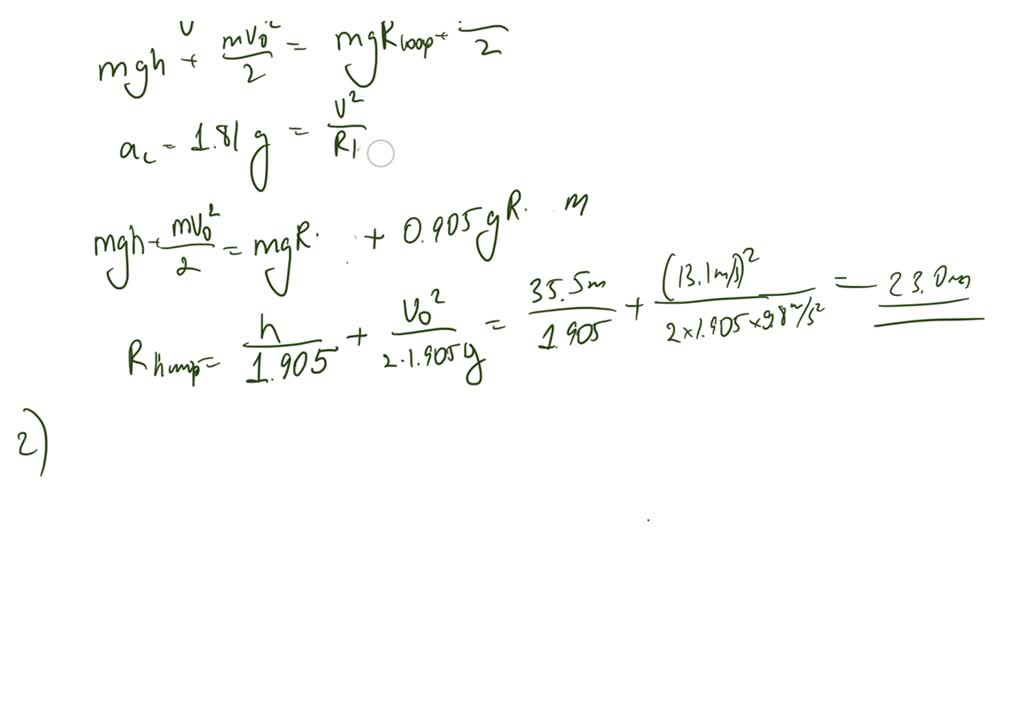 mgh + mv₀²/2 = mgR loop + /2
a_c = 1.81 g = v²/R
mgh + mv₀²/2 = mgR + 0.905 g R m
R hump = h/1.905 + v₀²/2·1.905g = 35.5m/1.905 + (13.1m/s)²/2×1.905×9.8m/s² = 23.0m
2)